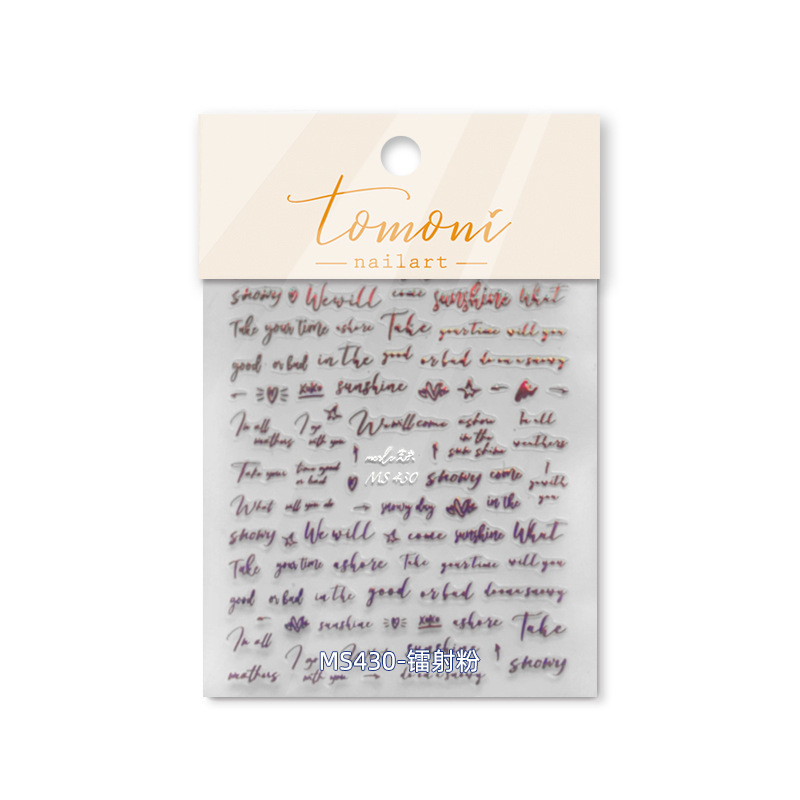 tomoni
nailart
snowy We will come sunshine What
Take your time ashore Take your time will you
good or bad in the good or bad
xoxo sunshine
In all I go We will come ashore In all
mathers with you in the weathers
sun shine
Take your time good snowy come I
or bad MS 430 go with
you
What will you do snowy day in the
snowy We will come sunshine What
Take your time ashore Take your time will you
good or bad in the good or bad
sunshine xoxo ashore Take
In all I go sunshine
mathers with you snowy
MS430-镭射粉